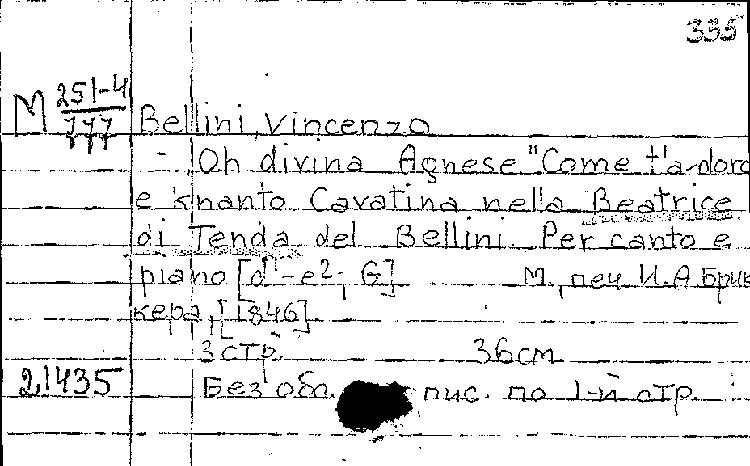 335
M 251-4/777 Bellini, Vincenzo
- Oh divina Agnese "Come t'adoro
e knanto Cavatina nella Beatrice
di Tenda del Bellini. Per canto e
piano [d¹-e²; G]. М., печ. И.А Брик
кера, [1846].
3 стр. 36 см
21435 Без обл. пис. по 1-й стр.